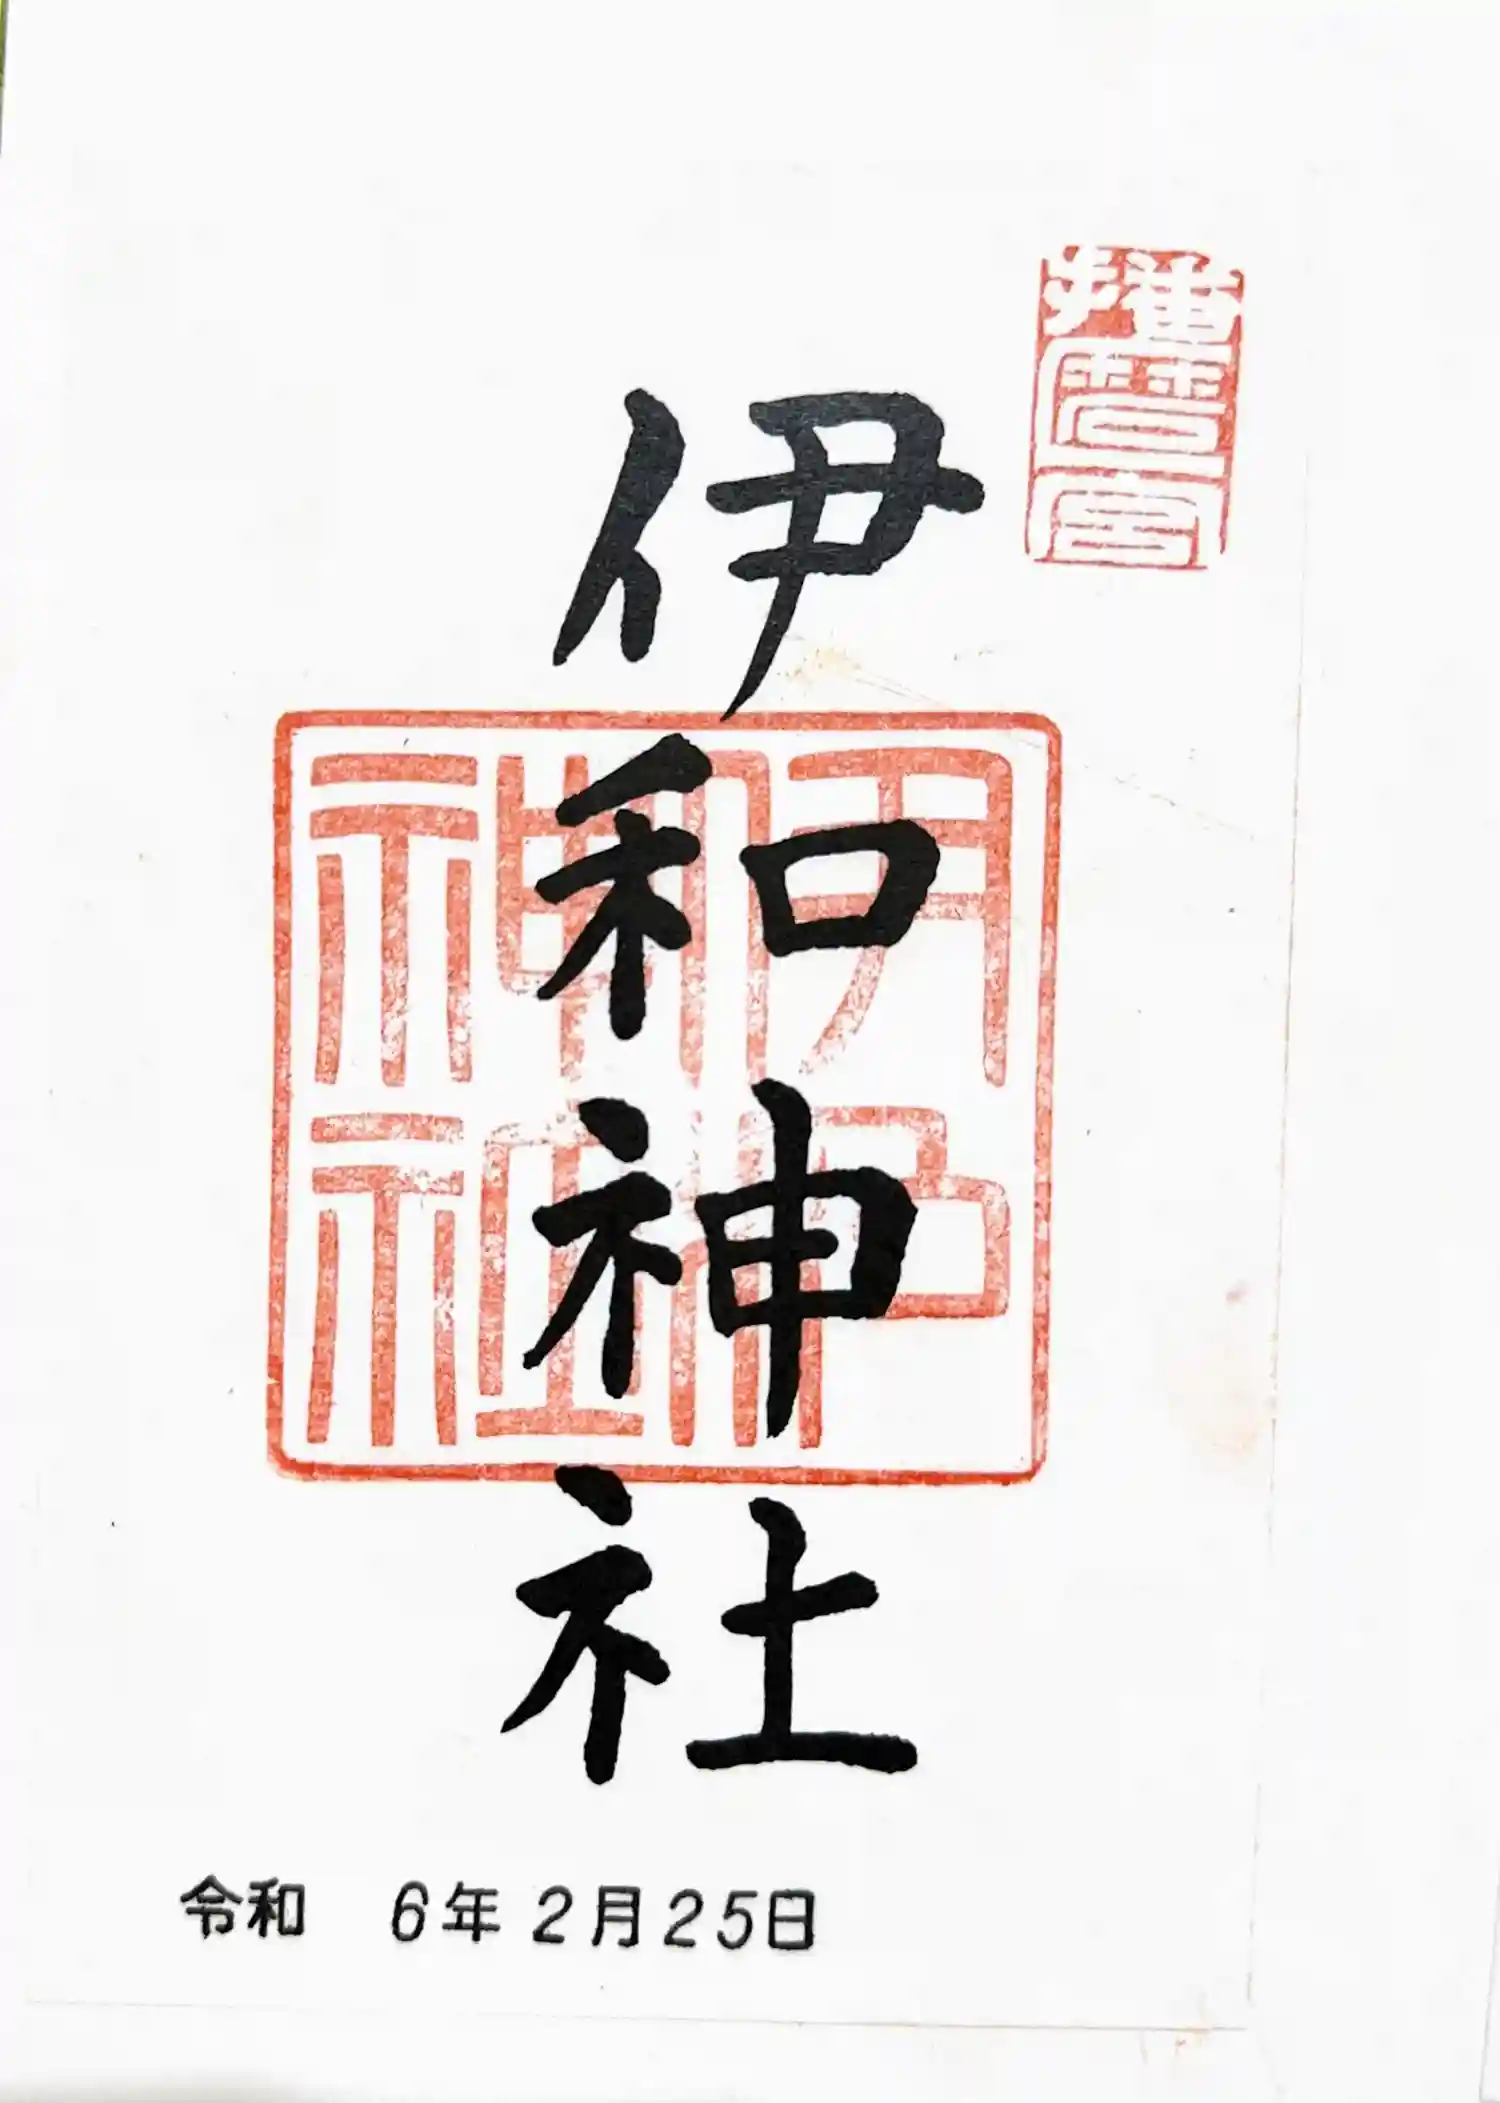 播磨一宮
伊和神社
伊和
神社
令和 6年2月25日